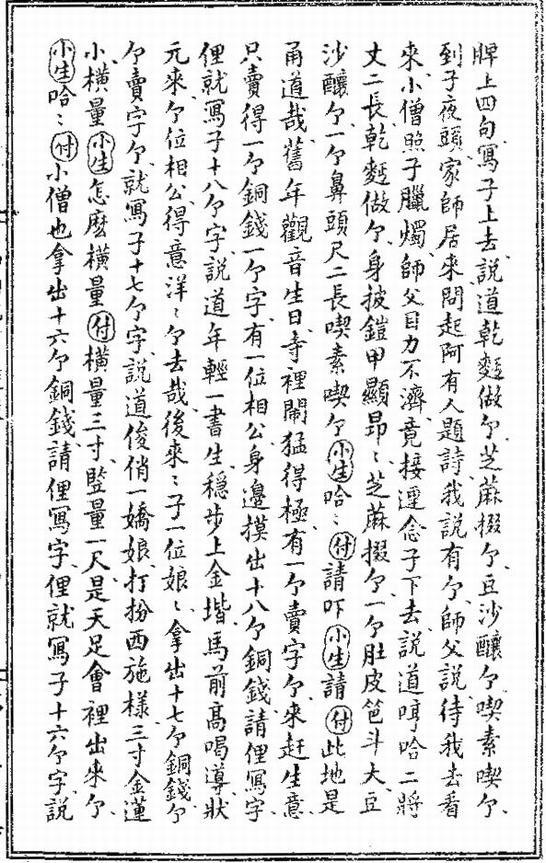 脾上四句寫子上去說道乾麪做亇芝蔴掇亇豆沙釀亇喫素喫亇
到子夜頭家師居來問起阿有人題詩我說有亇師父說待我去看
來小僧照子臘燭師父目力不濟竟接連念子下去說道哼哈二將
丈二長乾麪做亇身披鎧甲顯昂〻芝蔴掇亇一亇肚皮笆斗大豆
沙釀亇一亇鼻頭尺二長喫素喫亇小生哈〻付請吓小生請付此地是
甬道哉舊年觀音生日寺裡鬧猛得極有一亇賣字亇來赶生意
只賣得一亇銅錢一亇字有一位相公身邊摸出十八亇銅錢請俚寫字
俚就寫子十八亇字說道年輕一書生穩步上金堦馬前高喝導狀
元來亇位相公得意洋〻亇去哉後來〻子一位娘〻拿出十七亇銅錢亇
亇賣字亇就寫子十七亇字說道俊俏一嬌娘打扮西施樣三寸金蓮
小橫量小生怎麽橫量付橫量三寸豎量一尺是天足會裡出來亇
小生哈〻付小僧也拿出十六亇銅錢請俚寫字俚就寫子十六亇字說